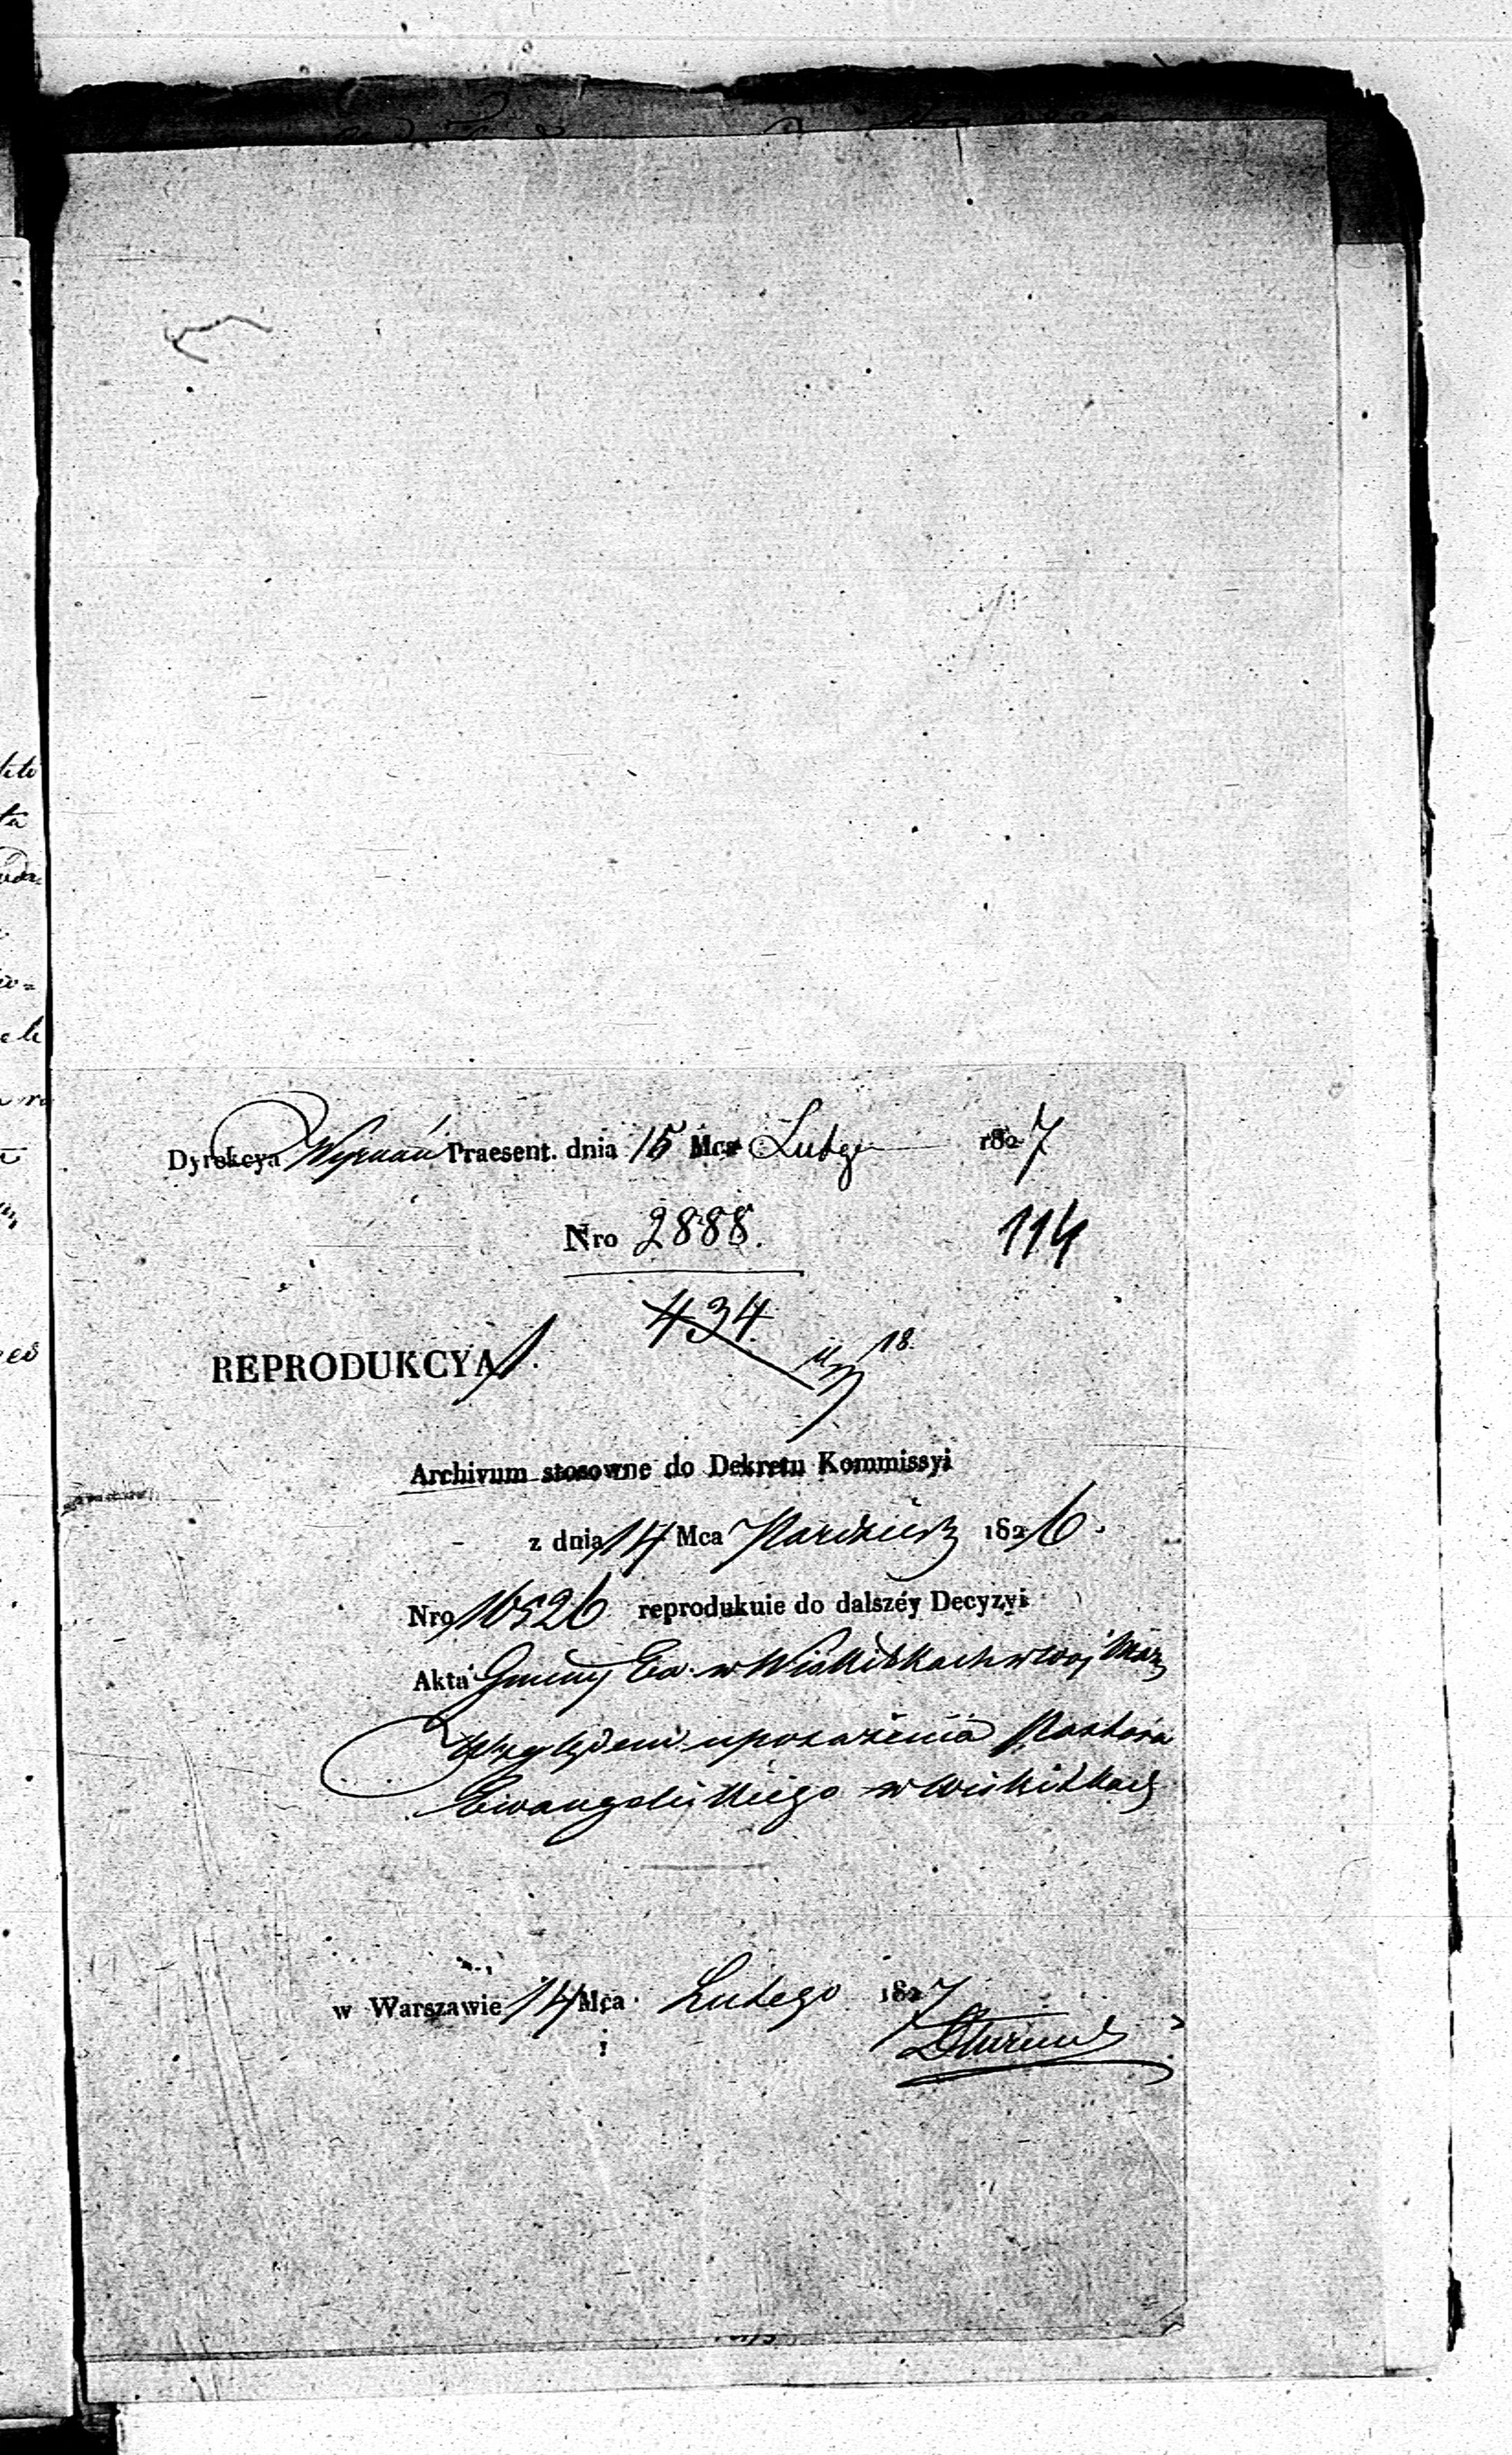 Dyrekcya Wyznań Praesent. dnia 15 Mca Lutego 1827
Nro 2888.
114
434.
18.
REPRODUKCYA 1.
Archivum stosowne do Dekretu Kommissyi
z dnia 14 Mca Paźdźier 1826.
Nro 16526 reprodukuie do dalszéy Decyzyi
Akta Gminy Ew. w Wiskitkach w Woj Maz
Względem uposażenia Pastora
Ewangelickiego w Wiskitkach
w Warszawie 14 Mca Lutego 1827